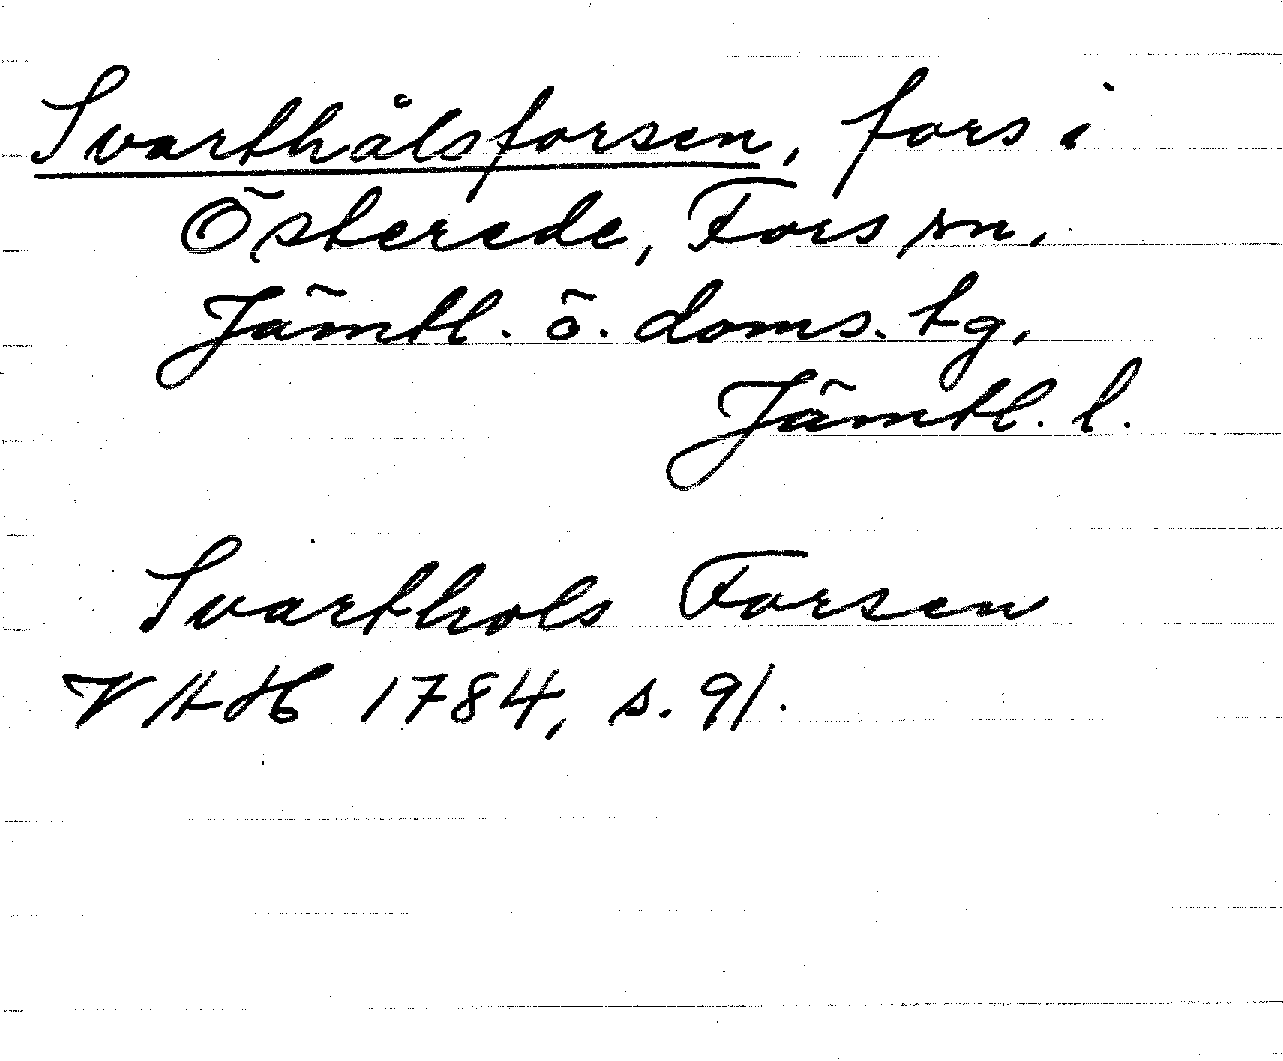 Svarthålsforsen, fors i
Österede, Fors sn.
Jämtl. ö. doms. tg.
Jämtl. l.
Svarthols Forsen
VAH 1784, s. 91.